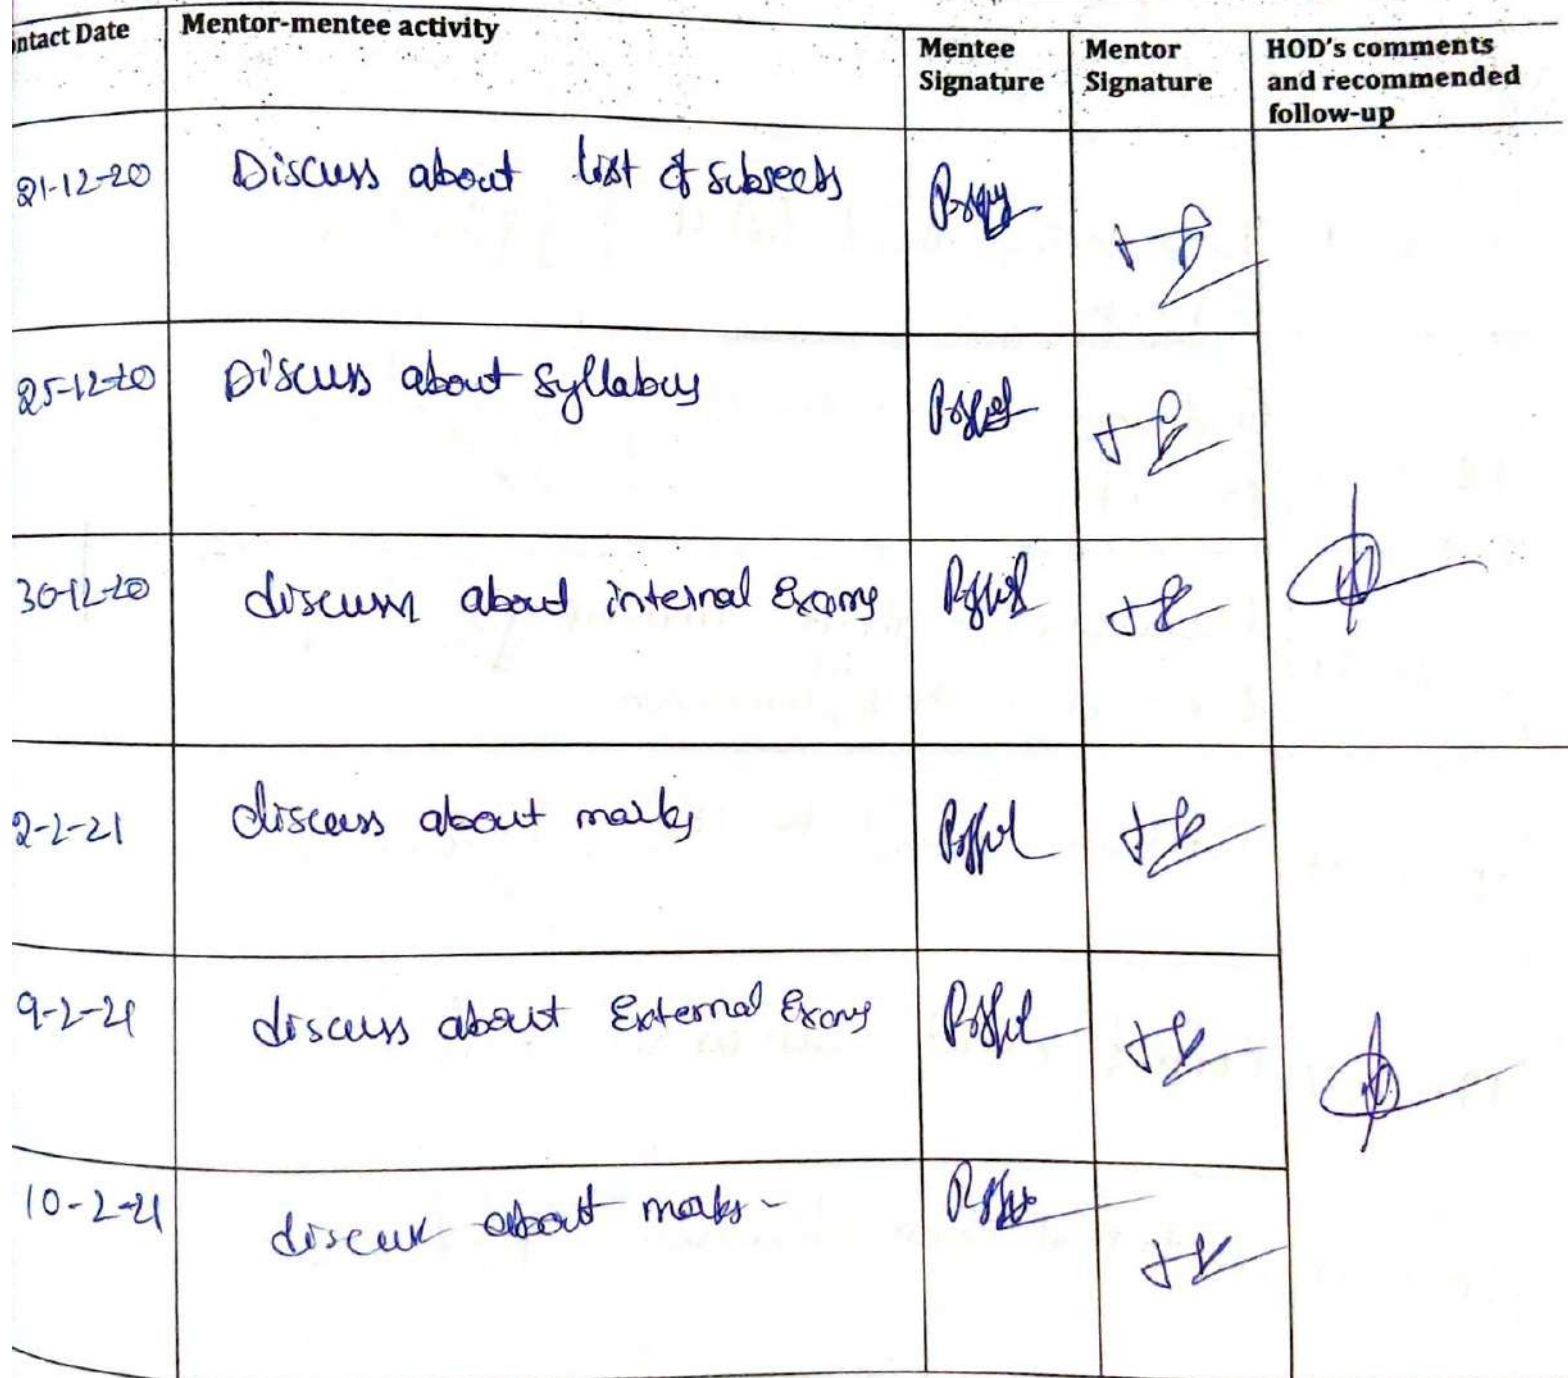 ntact Date
Mentor-mentee activity
Mentee Signature
Mentor Signature
HOD's comments and recommended follow-up
21-12-20
Discuss about list of subjects
25-12-20
Discuss about Syllabus
30-12-20
discuss about internal Exams
2-2-21
discuss about marks
9-2-21
discuss about External Exams
10-2-21
discuss about marks-